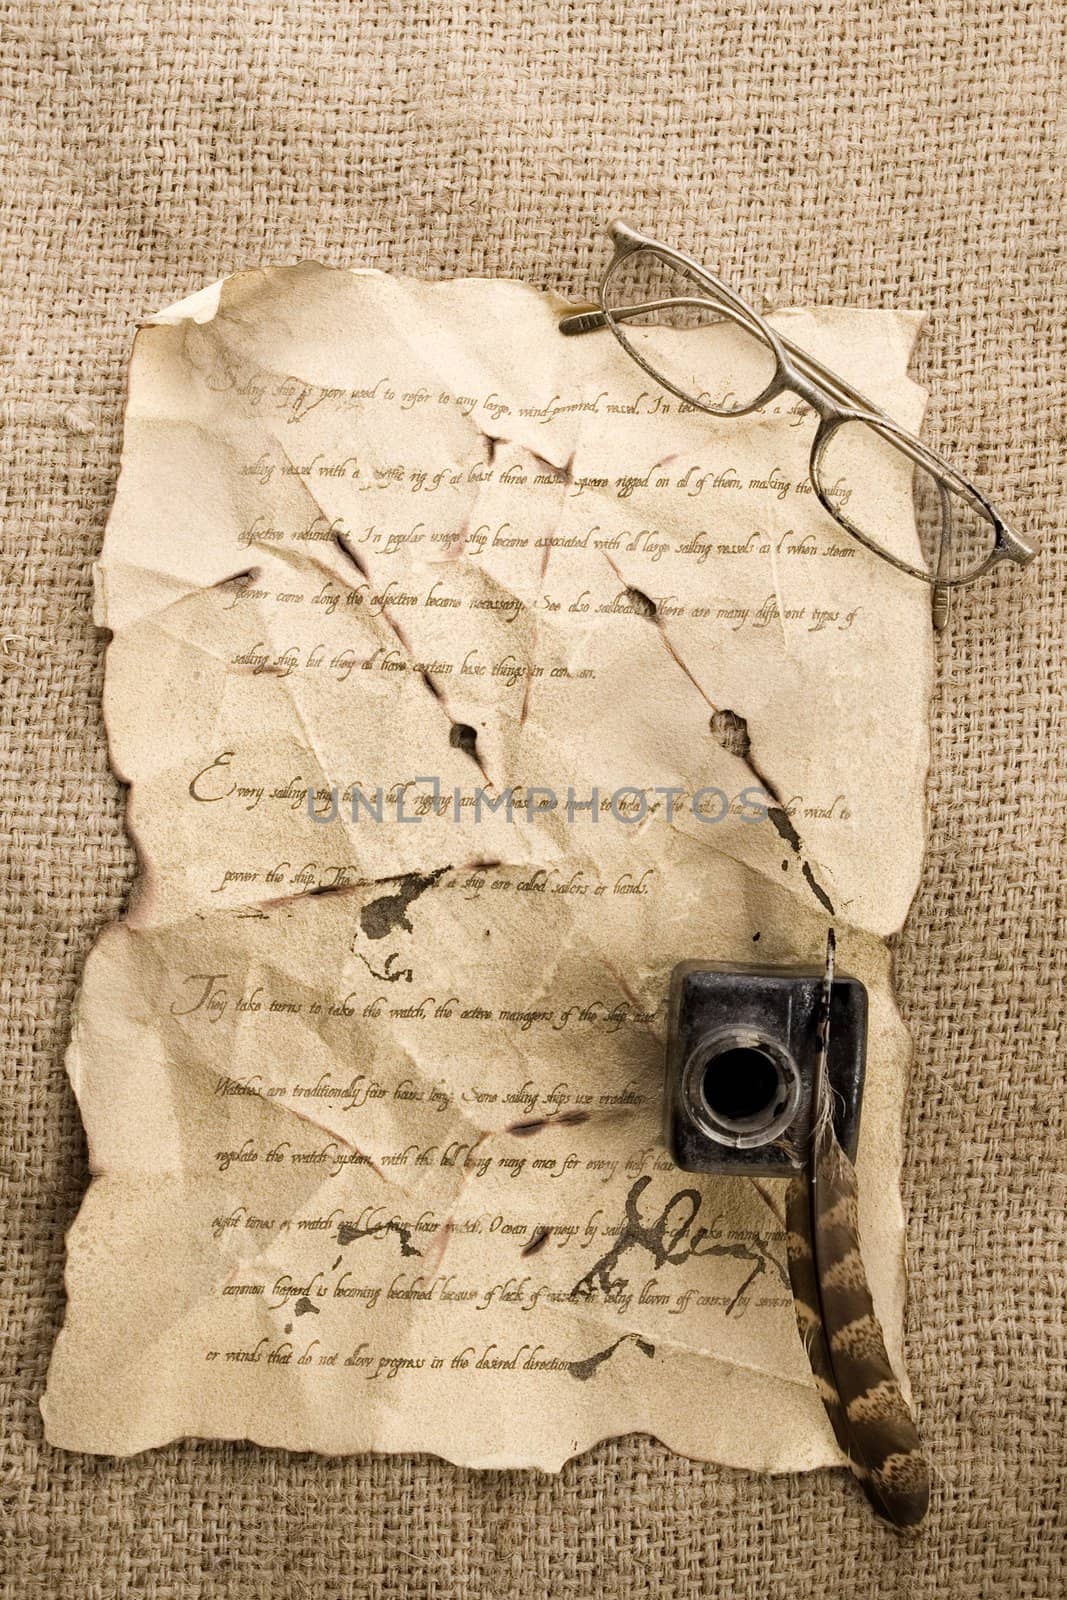 Sailing ship is now used to refer to any large, wind-powered, vessel. In technical a ship
sailing vessel with a rig of at least three masts square rigged on all of them, making the sailing
adjective redundant. In popular usage ship became associated with all large sailing vessels and when steam
power came along the adjective became necessary. See also sailboat. There are many different types of
sailing ship, but they all have certain basic things in common.
Every sailing ship has a hull, rigging and at least one mast to hold up the sails that use the wind to
power the ship. The a ship are called sailors or hands.
They take turns to take the watch, the active managers of the ship and
Watches are traditionally four hours long. Some sailing ships use tradition
regulate the watch system, with the bell being rung once for every half hour
eight times at watch end (a four-hour watch). Ocean journeys by sailing can take many mon
common hazard is becoming becalmed because of lack of wind, or being blown off course by severe
or winds that do not allow progress in the desired direction
UNLIMPHOTOS